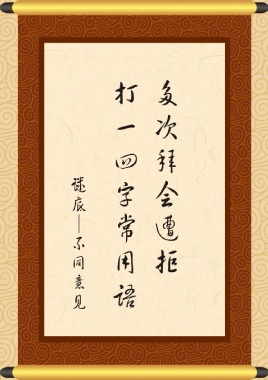 多次拜会遭拒
打一四字常用语
谜底——不同意见